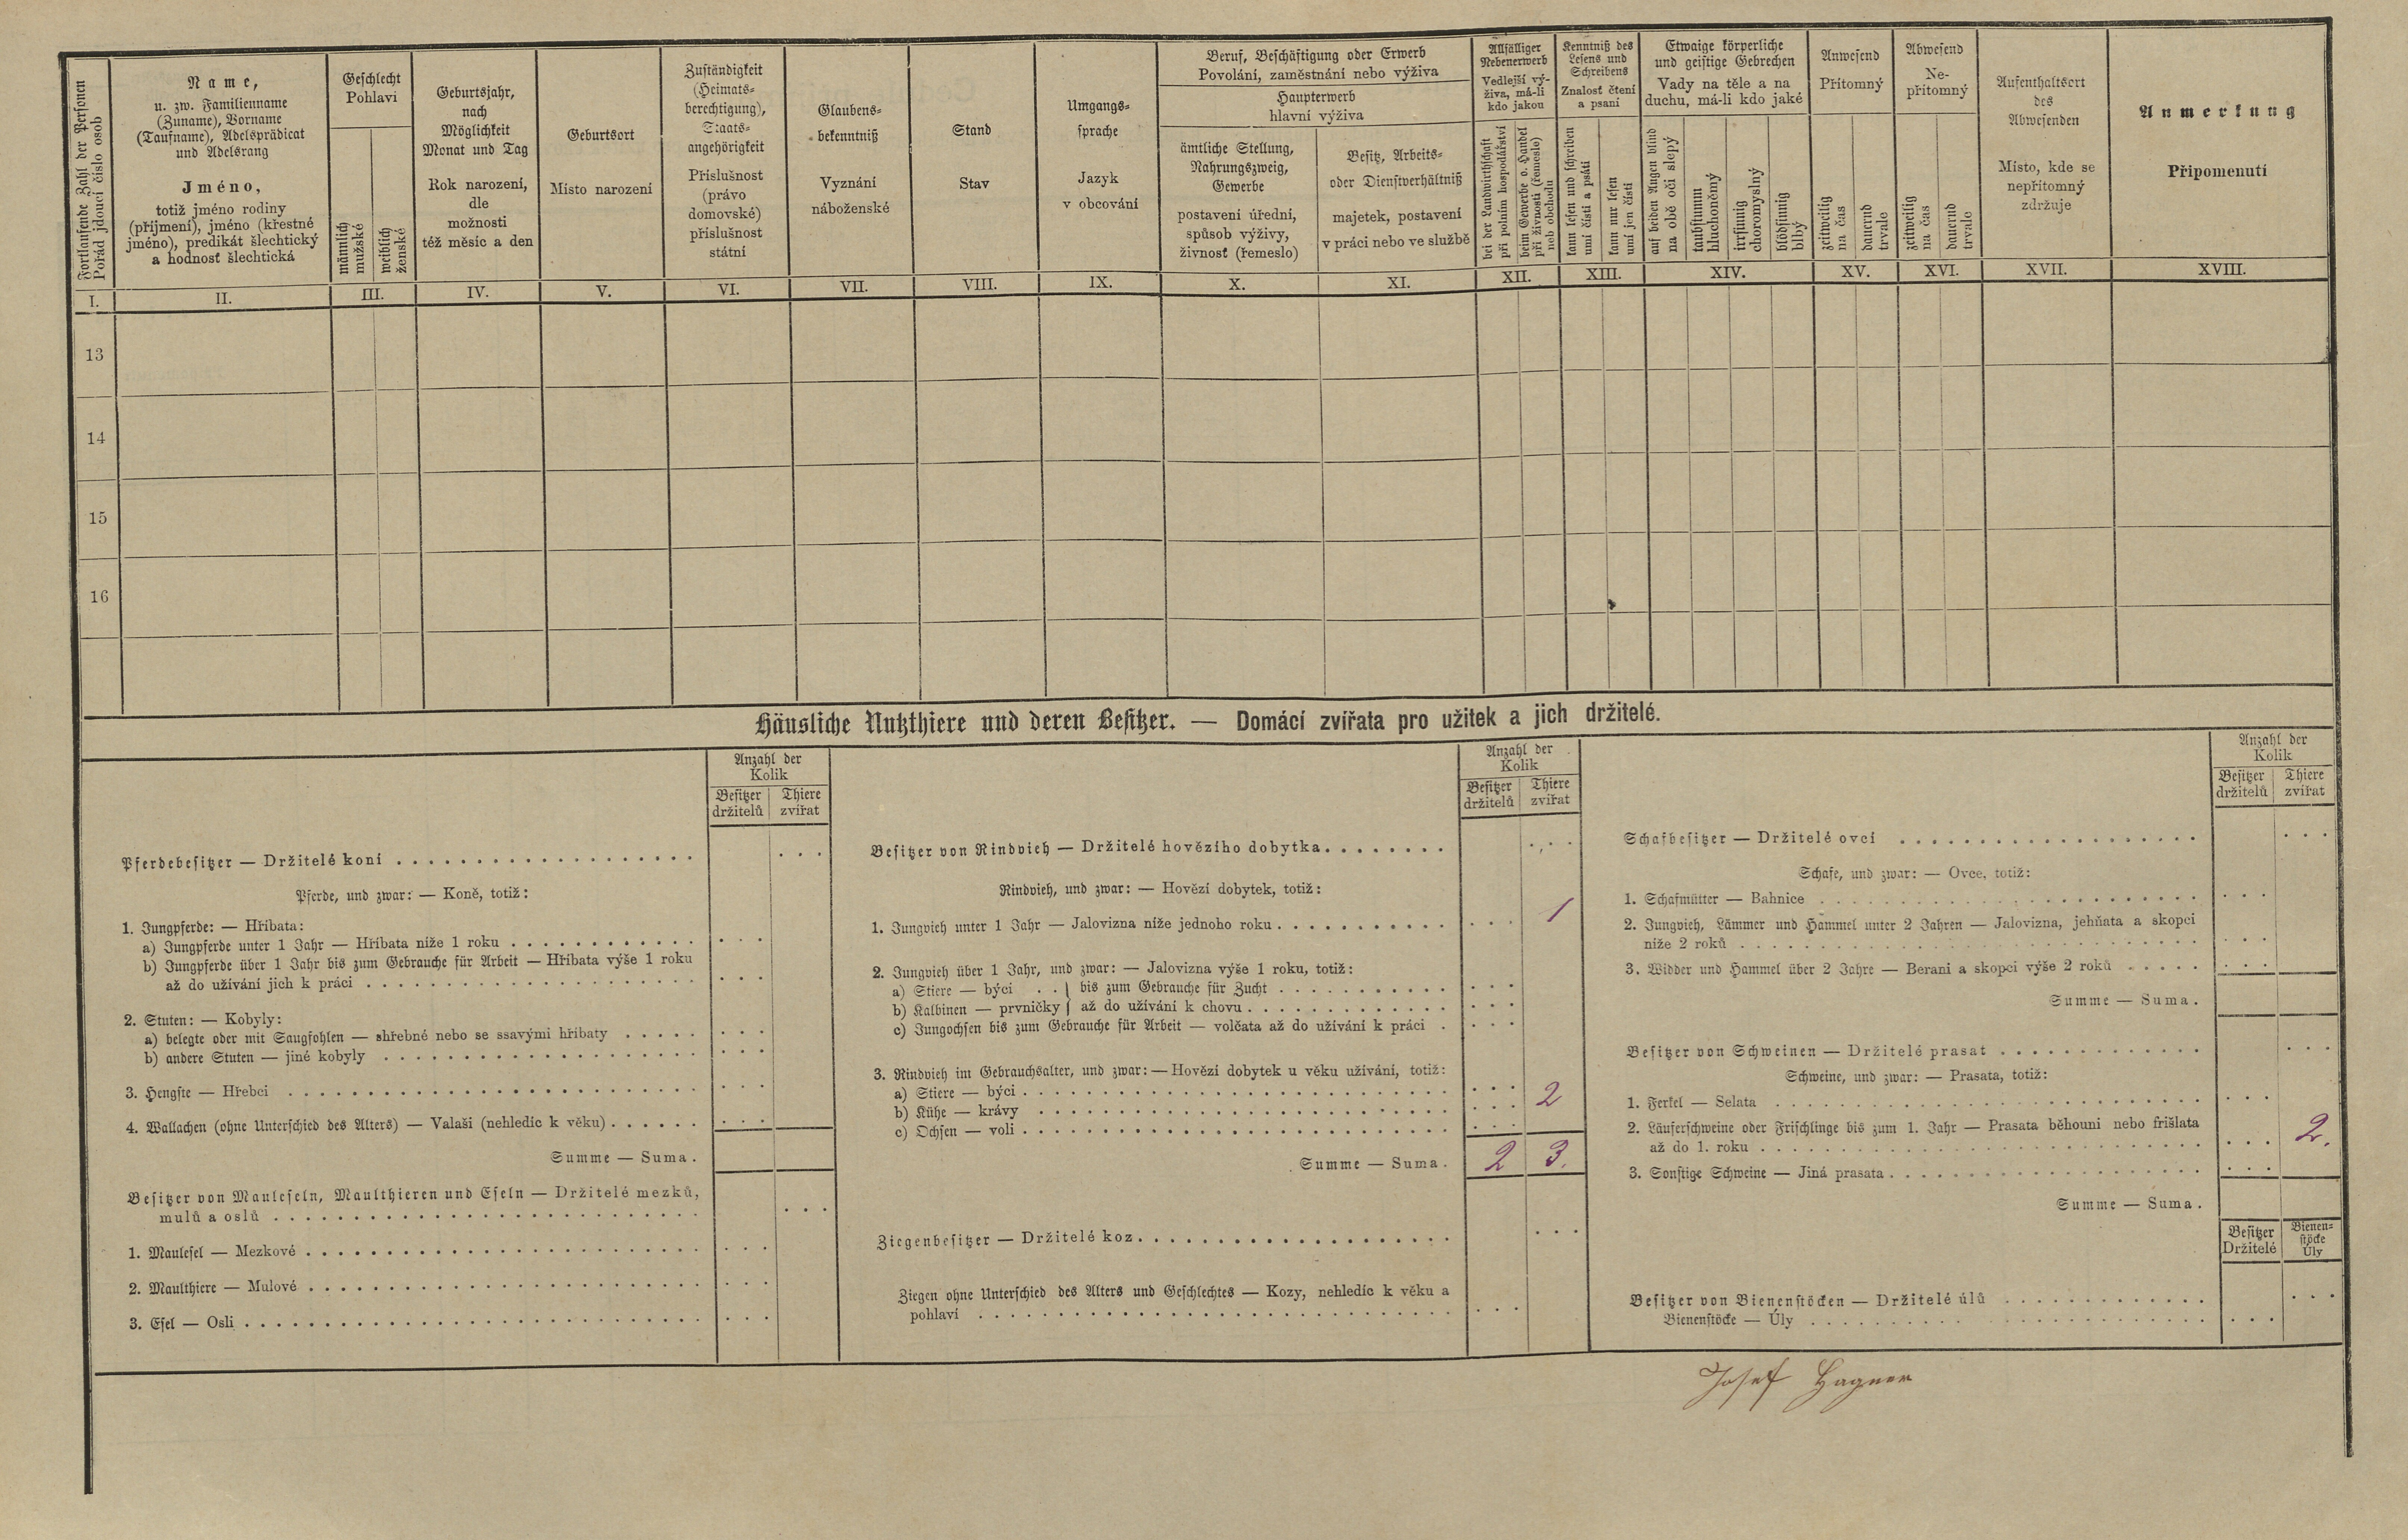 Fortlaufende Zahl der Personen
Pořád jdoucí číslo osob
Name,
u. zw. Familienname
(Zuname), Vorname
(Taufname), Adelsprädicat
und Adelsrang
Jméno,
totiž jméno rodiny
(příjmení), jméno (křestné
jméno), predikát šlechtický
a hodnosť šlechtická
Geschlecht
Pohlaví
männlich
mužské
weiblich
ženské
Geburtsjahr,
nach
Möglichkeit
Monat und Tag
Rok narození,
dle
možnosti
též měsíc a den
Geburtsort
Místo narození
Zuständigkeit
(Heimats-
berechtigung),
Staats-
angehörigkeit
Příslušnost
(právo
domovské)
příslušnost
státní
Glaubens-
bekenntniß
Vyznání
náboženské
Stand
Stav
Umgangs-
sprache
Jazyk
v obcování
Beruf, Beschäftigung oder Erwerb
Povolání, zaměstnání nebo výživa
Haupterwerb
hlavní výživa
ämtliche Stellung,
Nahrungszweig,
Gewerbe
postavení úřední,
spůsob výživy,
živnosť (řemeslo)
Besitz, Arbeits-
oder Dienstverhältniß
majetek, postavení
v práci nebo ve službě
Allfälliger
Nebenerwerb
Vedlejší vý-
živa, má-li
kdo jakou
bei der Landwirthschaft
při polním hospodářství
beim Gewerbe o. Handel
při živnosti (řemesle)
neb obchodu
Kenntniß des
Lesens und
Schreibens
Znalosť čtení
a psaní
kann lesen und schreiben
umí čísti a psáti
kann nur lesen
umí jen čísti
Etwaige körperliche
und geistige Gebrechen
Vady na těle a na
duchu, má-li kdo jaké
auf beiden Augen blind
na obě oči slepý
taubstumm
hluchoněmý
irrsinnig
choromyslný
blödsinnig
blbý
Anwesend
Přítomný
zeitweilig
na čas
dauernd
trvale
Abwesend
Ne-
přítomný
zeitweilig
na čas
dauernd
trvale
Aufenthaltsort
des
Abwesenden
Místo, kde se
nepřítomný
zdržuje
Anmerkung
Připomenutí
I. II. III. IV. V. VI. VII. VIII. IX. X. XI. XII. XIII. XIV. XV. XVI. XVII. XVIII.
13
14
15
16
Häusliche Nutzthiere und deren Besitzer. — Domácí zvířata pro užitek a jich držitelé.
Anzahl der
Kolik
Besitzer Thiere
držitelů zvířat
Pferdebesitzer — Držitelé koní
Pferde, und zwar: — Koně, totiž:
1. Jungpferde: — Hříbata:
a) Jungpferde unter 1 Jahr — Hříbata níže 1 roku
b) Jungpferde über 1 Jahr bis zum Gebrauche für Arbeit — Hříbata výše 1 roku
až do užívání jich k práci
2. Stuten: — Kobyly:
a) belegte oder mit Saugfohlen — shřebné nebo se ssavými hříbaty
b) andere Stuten — jiné kobyly
3. Hengste — Hřebci
4. Wallachen (ohne Unterschied des Alters) — Valaši (nehledíc k věku)
Summe — Suma.
Besitzer von Mauleseln, Maulthieren und Eseln — Držitelé mezků,
mulů a oslů
1. Maulesel — Mezkové
2. Maulthiere — Mulové
3. Esel — Osli
Anzahl der
Kolik
Besitzer Thiere
držitelů zvířat
Besitzer von Rindvieh — Držitelé hovězího dobytka
Rindvieh, und zwar: — Hovězí dobytek, totiž:
1. Jungvieh unter 1 Jahr — Jalovizna níže jednoho roku 1
2. Jungvieh über 1 Jahr, und zwar: — Jalovizna výše 1 roku, totiž:
a) Stiere — býci . . } bis zum Gebrauche für Zucht
b) Kalbinen — prvničky } až do užívání k chovu
c) Jungochsen bis zum Gebrauche für Arbeit — volčata až do užívání k práci
3. Rindvieh im Gebrauchsalter, und zwar: — Hovězí dobytek u věku užívání, totiž:
a) Stiere — býci
b) Kühe — krávy 2
c) Ochsen — voli
Summe — Suma. 2 3.
Ziegenbesitzer — Držitelé koz
Ziegen ohne Unterschied des Alters und Geschlechtes — Kozy, nehledíc k věku a
pohlaví
Anzahl der
Kolik
Besitzer Thiere
držitelů zvířat
Schafbesitzer — Držitelé ovcí
Schafe, und zwar: — Ovce, totiž:
1. Schafmütter — Bahnice
2. Jungvieh, Lämmer und Hammel unter 2 Jahren — Jalovizna, jehňata a skopci
níže 2 roků
3. Widder und Hammel über 2 Jahre — Berani a skopci výše 2 roků
Summe — Suma.
Besitzer von Schweinen — Držitelé prasat
Schweine, und zwar: — Prasata, totiž:
1. Ferkel — Selata
2. Läuferschweine oder Frischlinge bis zum 1. Jahr — Prasata běhouni nebo frišlata
až do 1. roku 2.
3. Sonstige Schweine — Jiná prasata
Summe — Suma.
Besitzer
Držitelé
Bienen-
stöcke
Úly
Besitzer von Bienenstöcken — Držitelé úlů
Bienenstöcke — Úly
Josef Hagner